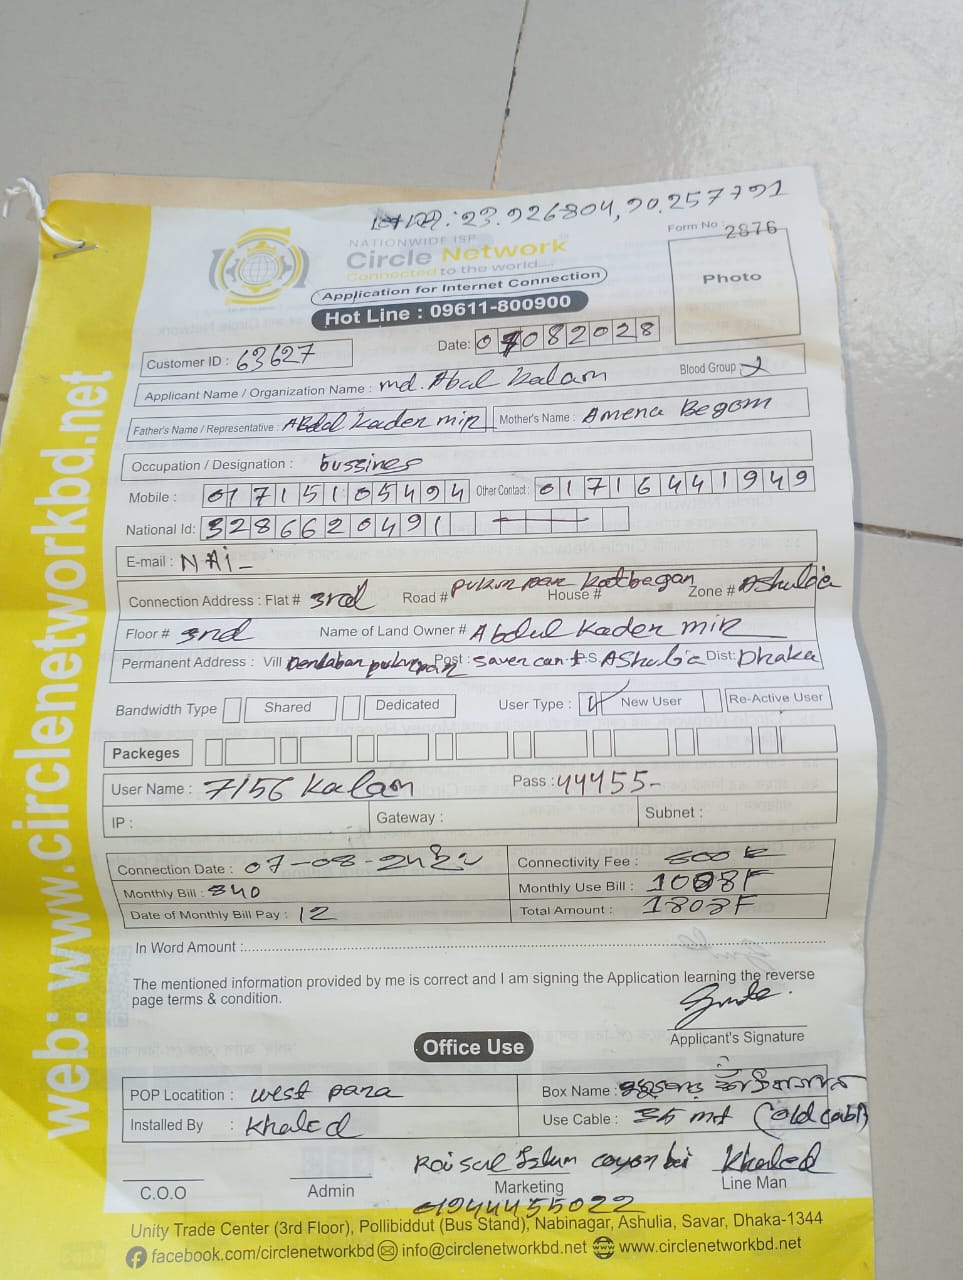 23.926804, 90.257791
NATIONWIDE ISP
Circle Network
Connected to the world....
Form No : 2876
Photo
Application for Internet Connection
Hot Line : 09611-800900
Customer ID : 63627
Date: 07082028
Applicant Name / Organization Name : md. Abul Kalam Blood Group
Father's Name / Representative : Abdul Kader mir Mother's Name : Amena Begom
Occupation / Designation : bussines
Mobile : 01715105494 Other Contact : 01716441949
National Id: 3286620491
E-mail : NAi
Connection Address : Flat # 3rd Road # pukur par House # Zone # Ashulia
Floor # 3rd Name of Land Owner # Abdul Kader mir
Permanent Address : Vill Post : saver cant P.S. Ashulia Dist: Dhaka
Bandwidth Type Shared Dedicated User Type : New User Re-Active User
Packeges
User Name : 7156 Kalam Pass : 44455
IP : Gateway : Subnet :
Connection Date : 07-08-24 Connectivity Fee : 800
Monthly Bill : 840 Monthly Use Bill :
Date of Monthly Bill Pay : 12 Total Amount :
In Word Amount :
The mentioned information provided by me is correct and I am signing the Application learning the reverse
page terms & condition.
Applicant's Signature
Office Use
POP Locatition : west para Box Name :
Installed By : Khaled Use Cable : 35 mt (old cabl)
Raisul Islam Khaled
C.O.O Admin Marketing Line Man
01944455022
Unity Trade Center (3rd Floor), Pollibiddut (Bus Stand), Nabinagar, Ashulia, Savar, Dhaka-1344
facebook.com/circlenetworkbd info@circlenetworkbd.net www.circlenetworkbd.net
web: www.circlenetworkbd.net